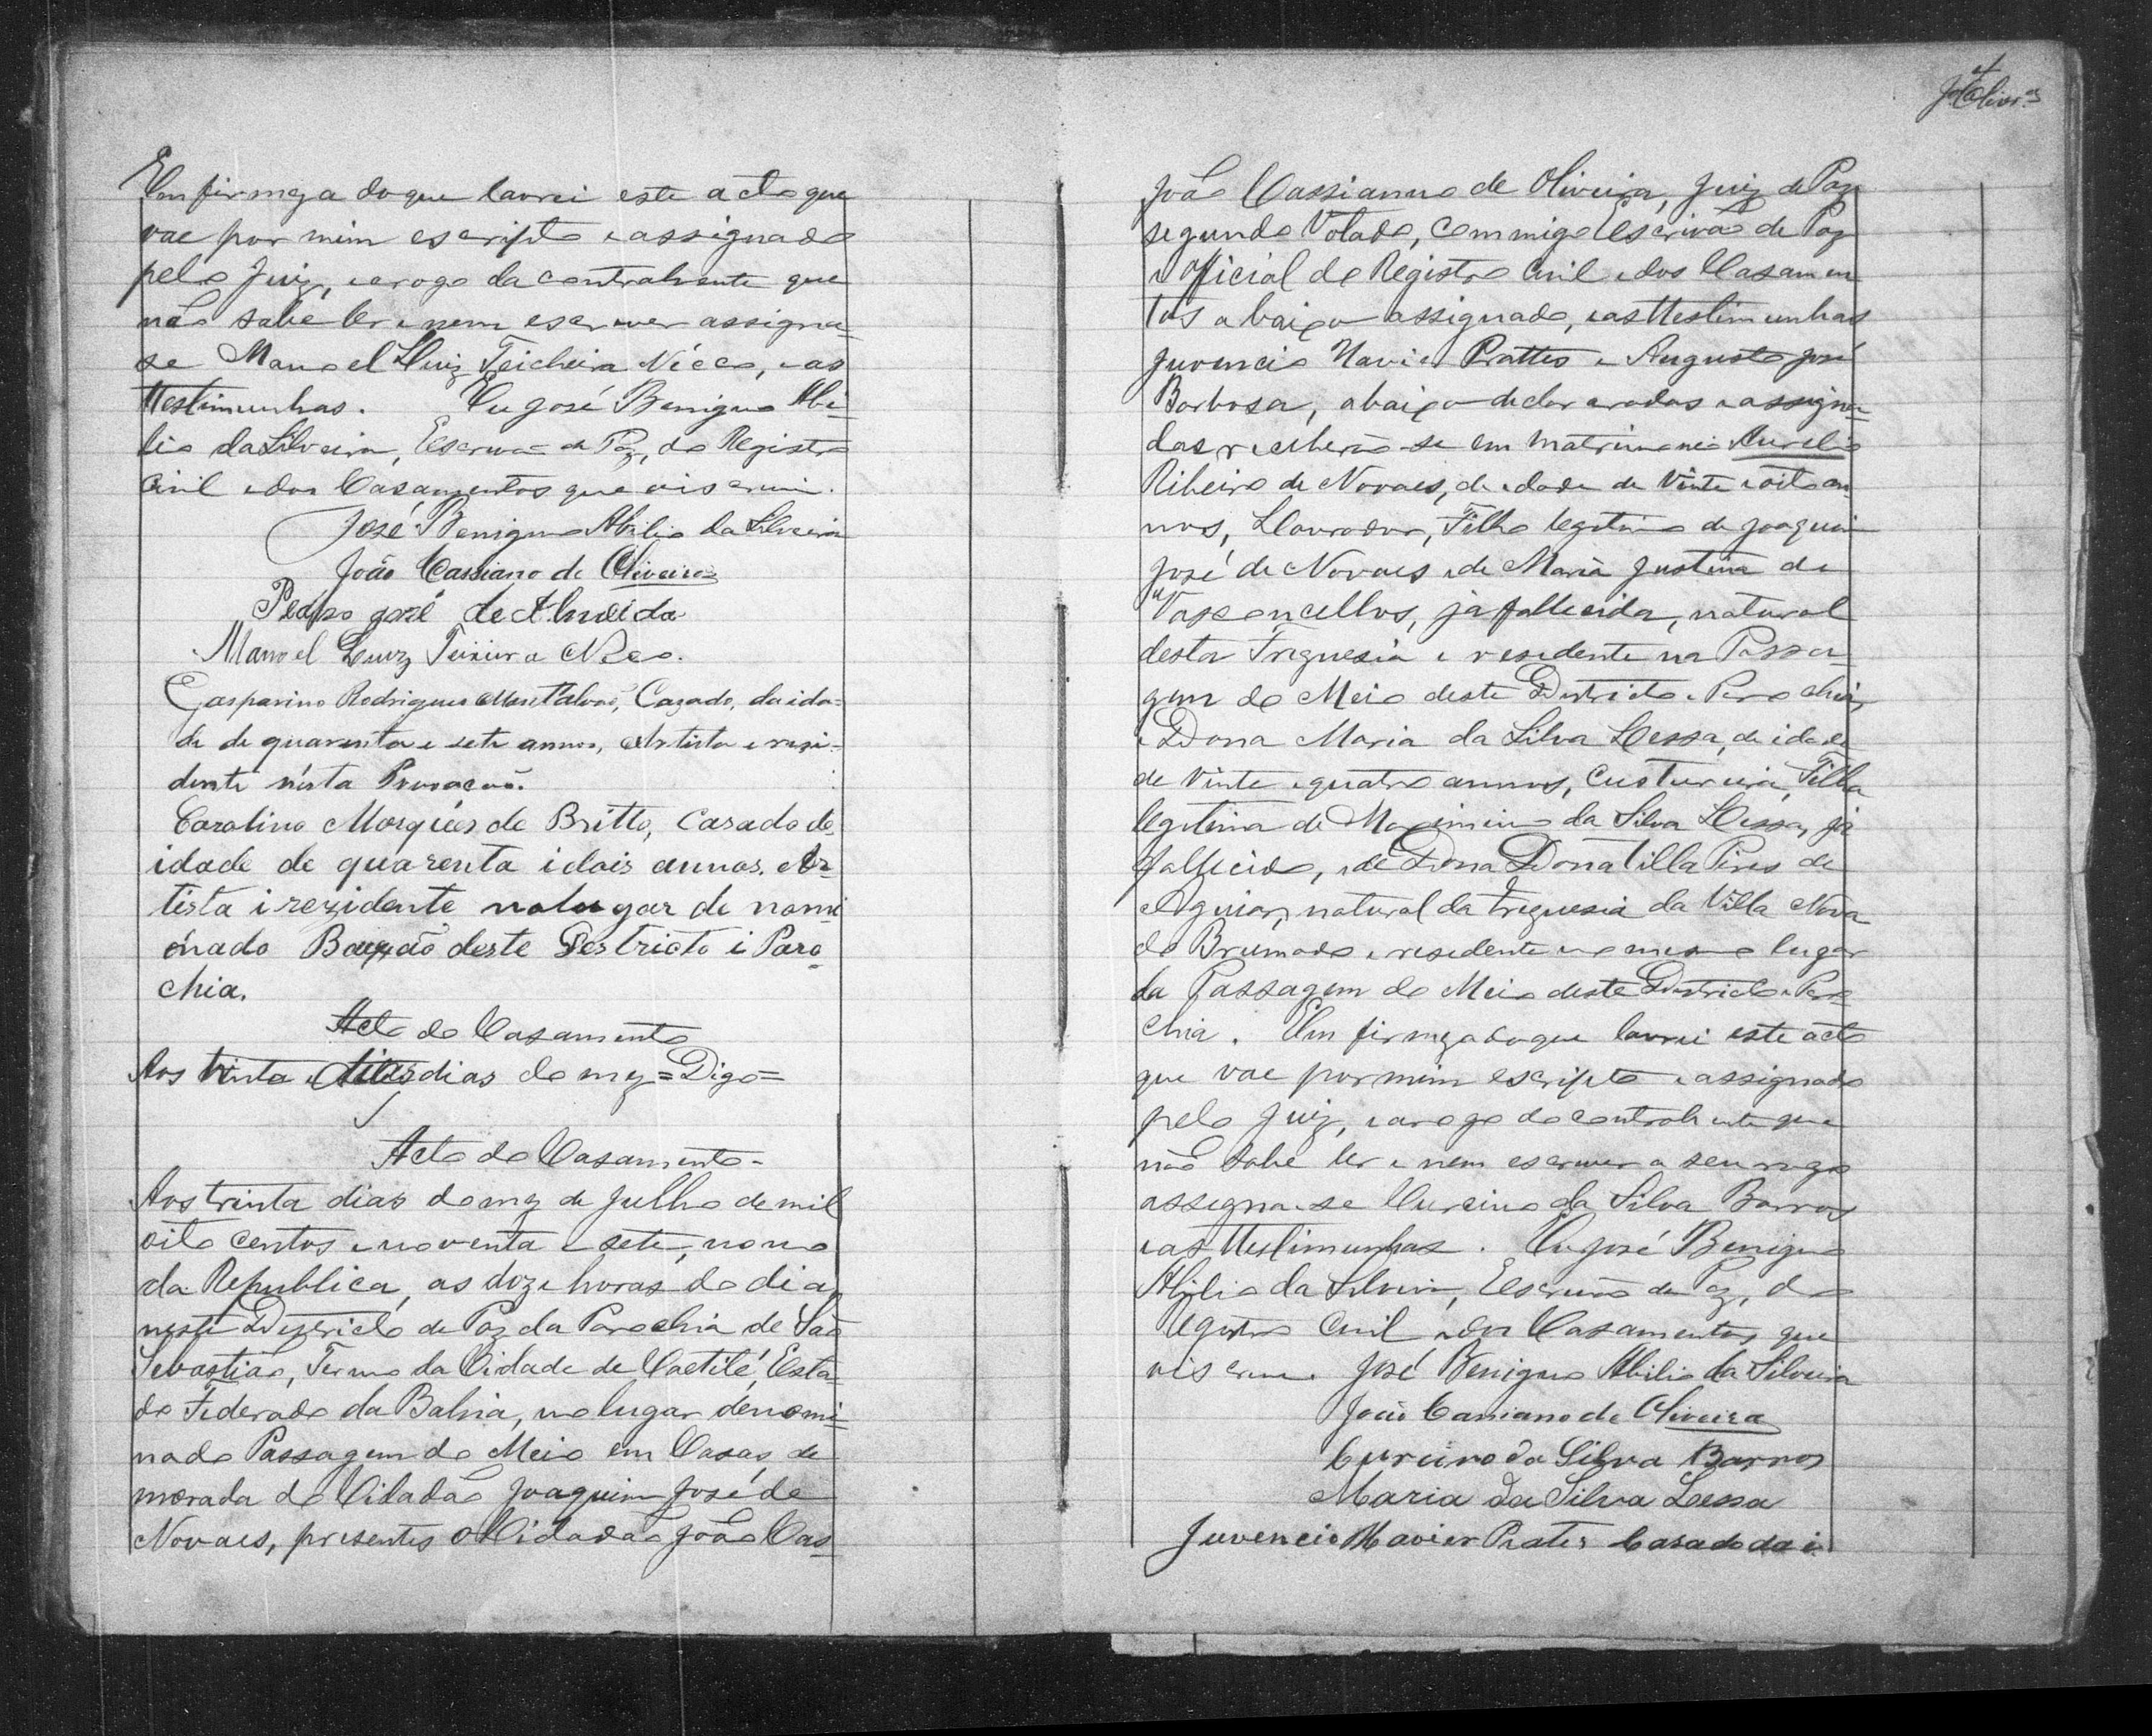 Em firmeza do que lavrei este acto que
vae por mim escripto e assignado
pelo Juiz, e a rogo da contrahente que
não sabe ler e nem escrever assigna-
se Manoel Luiz Teicheira Nicco, e as
ttestimunhas. Eu José Benigno Abi-
lio da Silveira, Escrivão de Paz, do Registro
Civil e dos Casamentos que o iscrevi.
José Benigno Abilio da Silveira
João Cassiano de Oliveira
Pedro José de Almeida
Manoel Luiz Teixeira Nico.
Gasparino Rodrigues Montalvaõ, Cazado, da ida-
de de quarenta e sete annos, Artista e resi-
dente nésta Provoacaõ.
Carolino Marques de Britto, Casado de
idade de quarenta i dois annos. Ar-
tista i rezidente no lugar de nomi
nado Baixaõ deste Destricto i Paro-
chia.
Acto do Casamento
Aos trinta e dias do mez = Digo =
Acto do Casamento -
Aos trinta dias do mez de Julho de mil
oito centos e noventa e sete, nono
da Republica, as doze horas do dia,
neste Destricto de Paz da Parochia de São
Sebastião, Termo da Cidade de Caetité, Esta-
do Federado da Bahia, no lugar denomi-
nado Passagem do Meio em Casas de
morada do Cidadão Joaquim José de
Novaes, presentes o Cidadão João Cas-
4
João Cassianno de Oliveira, Juiz de Paz
segundo Votado, commigo Escrivão de Paz
e Official do Registro Civil e dos Casamen
tos abaixo assignado, e as ttestimunhas
Juvencio Xavier Prattes e Augusto José
Barbosa, abaixo declar aradas e assigna-
das receberão-se em matrimonio Aurelio
Ribeiro de Novaes, de idade de Vinte e oito an-
nos, Llavrador, Filho legitimo de Joaquim
José de Novaes e de Maria Justina de
Vasconcellos, ja fallecida, natural
desta Freguesia e residente na Passa-
gem do Meio deste Districto e Parochia,
e Dona Maria da Silva Lessa, de idade
de Vinte e quatro annos, Custureira, Filha
legitima de Maximino da Silva Lessa, já
fallecido, e de Dona Donatilla Pires de
Aguiar, natural da Freguesia da Villa Nova
do Brumado e residente no mesmo lugar
da Passagem do Meio deste Districto e Paro-
chia. Em firmeza do que lavrei este acto
que vae por mim escripto e assignado
pelo Juiz, e a rogo do contrahente que
não sabe ler e nem escrever a seu rogo
assigna-se Curcino da Silva Barros
e as ttestimunhas. Eu José Benigno
Abilio da Silveira, Escrivão de Paz, do
Registro Civil e dos Casamentos que
o iscrevi. José Benigno Abilio da Silveira
João Cassiano de Oliveira
Curcino da Silva Barros
Maria da Silva Lessa
Juvencio Xavier Prates Casado da i